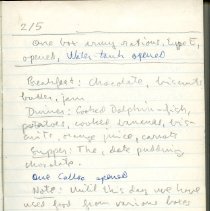 2/5
One box army rations, type E,
opened, Water tank opened
Breakfast: Chocolate, biscuits
butter, jam.
Dinner: Cooked Dolphin-fish,
potatoes, cooked bananas, bis-
cuits, orange juice, carrots
Supper: The, date pudding
chocolate.
One Calso opened
Note: Until this day we have
used food from various boxes